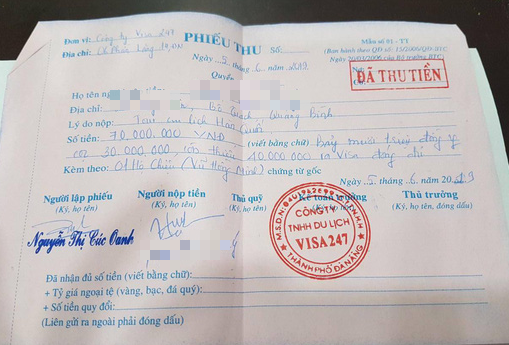 Đơn vị: Công ty Visa 247
PHIẾU THU
Số:
Mẫu số 01 - TT
Địa chỉ:
(Ban hành theo QĐ số: 15/2006/QĐ-BTC
Ngày 20/03/2006 của Bộ trưởng BTC)
Ngày 5 tháng 6 năm 2019
Quyển
ĐÃ THU TIỀN
Họ tên
Địa chỉ: Bố Trạch Quảng Bình
Lý do nộp: Tour du lịch Hàn Quốc
Số tiền: 70.000.000 VNĐ (viết bằng chữ) Bảy mươi triệu đồng
cọc 30.000.000, 10.000.000 ra Visa đóng đủ
Kèm theo: 01 Hộ Chiếu chứng từ gốc
Ngày 5 tháng 6 năm 2019
Người lập phiếu
(Ký, họ tên)
Người nộp tiền
(Ký, họ tên)
Thủ quỹ
(Ký, họ tên)
Kế toán trưởng
(Ký, họ tên)
Thủ trưởng
(Ký, họ tên, đóng dấu)
Nguyễn Thị Cúc Oanh
CÔNG TY
TNHH DU LỊCH
VISA247
THÀNH PHỐ ĐÀ NẴNG
Đã nhận đủ số tiền (viết bằng chữ):
+ Tỷ giá ngoại tệ (vàng, bạc, đá quý):
+ Số tiền quy đổi:
(Liên gửi ra ngoài phải đóng dấu)